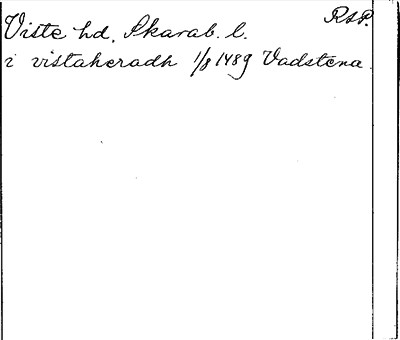 Viste hd. Skarab. l. RSP.
i vistaheradh 1/8 1489 Vadstena.